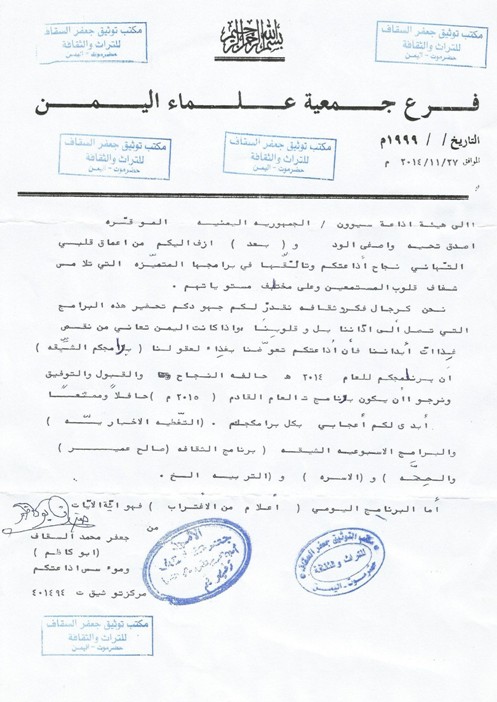 مكتب توثيق جعفر السقاف
للتراث والثقافة
حضرموت - اليمن
بسم الله الرحمن الرحيم
مكتب توثيق جعفر السقاف
للتراث والثقافة
حضرموت - اليمن
فرع جمعية علماء اليمن
التاريخ / / ١٩٩٩م
الموافق ٢٠١٤/١١/٢٧ م
مكتب توثيق جعفر السقاف
للتراث والثقافة
حضرموت - اليمن
مكتب توثيق جعفر السقاف
للتراث والثقافة
حضرموت - اليمن
الى هيئة اذاعة سيوون / الجمهوريه اليمنيه الموقره
اصدق تحيه واصفى الود و ( بعد ) ازف اليكم من اعماق قلبي
التهاني نجاح أذاعتكم وتالقها في برامجها المتميزه التي تلامس
شغاف قلوب المستمعين وعلى مختلف مستوياتهم .
نحن كرجال فكر وثقافه نقدر لكم جهودكم تحضير هذه البرامج
التي تصل ألى اذاننا بل وقلوبنا واذا كانت اليمن تعاني من نقص
غذات أبداننا فأن أذاعتكم تعوضنا بغذاء لعقولنا ( برامجكم الشيقه )
أن برنامجكم للعام ٢٠١٤ ه حالفه النجاح والقبول والتوفيق
ونرجو اأن يكون برنامج ت العام القادم ( ٢٠١٥ م ) حافلاً وممتعاً
أبدى لكم أعجابي بكل برامجكم . (التغطيه الاخباريه )
والبرامج الاسبوعيه الشيقه ( برنامج الثقافه (صالح عمير )
والصحه ) و ( الاسره ) و (التربيه الخ .
أما البرنامج اليومي ( أعلام من الاقتراب ) فهو اية الايات
من
جعفر محمد السقاف
(ابو كاظم )
ومؤسس اذاعتكم
مركز توثيق ت ٤٠١٤٩٤
مكتب التوثيق جعفر السقاف
للتراث والثقافة
حضرموت - اليمن
مكتب توثيق جعفر السقاف
للتراث والثقافة
حضرموت - اليمن